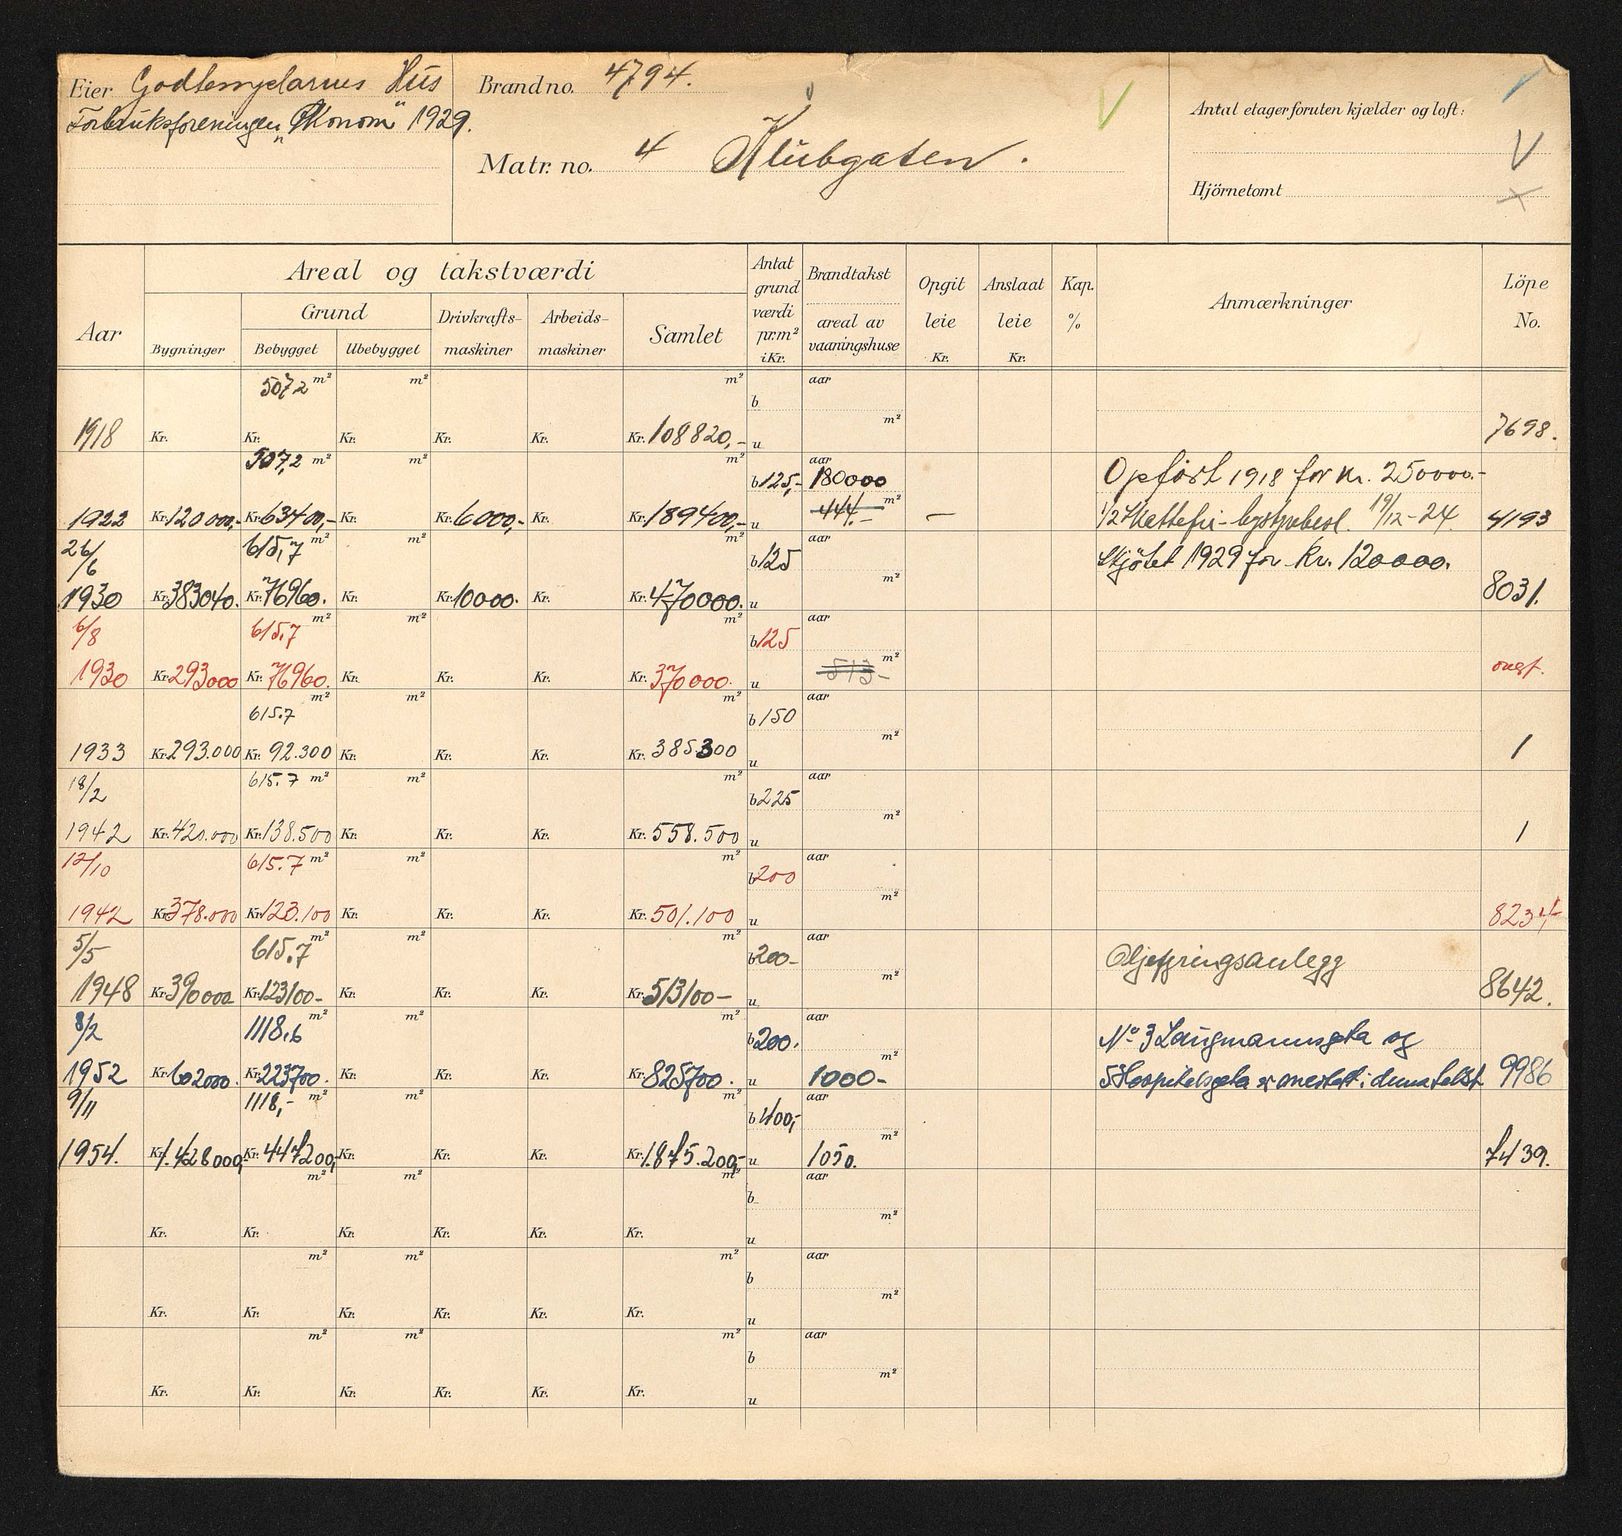 Eier Godtemplarnes Hus
Forbruksforeningen „Økonom“ 1929.
Brand no. 4794.
Matr. no. 4 Klubgaten.
Antal etager foruten kjælder og loft:
Hjörnetomt
Aar
Areal og takstværdi
Bygninger
Grund
Bebygget Ubebygget
Drivkrafts-
maskiner
Arbeids-
maskiner
Samlet
Antat
grund
værdi
pr.m²
i Kr.
Brandtakst
areal av
vaaningshuse
Opgit
leie
Kr.
Anslaat
leie
Kr.
Kap.
%
Anmærkninger
Löpe
No.
507,2 m² m² m² b aar
1918 Kr. Kr. Kr. Kr. Kr. Kr. 108820,- u m² 7698.
507,2 m² m² m² b 125,- aar 180000 Opført 1918 for kr. 250000.-
1922 Kr. 120000,- Kr. 63400,- Kr. Kr. 6000,- Kr. Kr. 189400,- u 444.- m² — 1/2 Skattefri - bystyrebesl. 19/12-24 4193
26/6 615,7 m² m² m² b 125 aar Skjøtet 1929 for kr. 120000.
1930 Kr. 383040. Kr. 76960. Kr. Kr. 10000. Kr. Kr. 470000. u m² 8031.
6/8 615,7 m² m² m² b 125 aar
1930 Kr. 293000 Kr. 76960. Kr. Kr. Kr. Kr. 370000. u 513- m²
615.7 m² m² m² b 150 aar
1933 Kr. 293.000 Kr. 92.300 Kr. Kr. Kr. Kr. 385300 u m² 1
18/2 615.7 m² m² m² b 225 aar
1942 Kr. 420.000 Kr. 138.500 Kr. Kr. Kr. Kr. 558.500 u m² 1
12/10 615.7 m² m² m² b 200 aar
1942 Kr. 378.000 Kr. 123.100 Kr. Kr. Kr. Kr. 501.100 u m² 8234
5/5 615.7 m² m² m² b 200- aar Oljefyringsanlegg
1948 Kr. 390000 Kr. 123100- Kr. Kr. Kr. Kr. 513100- u m² 8642.
8/2 1118.6 m² m² m² b 200. aar No 3 Laugmannsgata og
1952 Kr. 602000. Kr. 223700. Kr. Kr. Kr. Kr. 825700. u 1000- m² 5 Hospitalsgata er medtatt i denne takst 9986
9/11 1118,- m² m² m² b 400,- aar
1954. Kr. 1.428000,- Kr. 447200,- Kr. Kr. Kr. Kr. 1.875.200,- u 1050. m² 7439.
m² m² m² b aar
Kr. Kr. Kr. Kr. Kr. Kr. u m²
m² m² m² b aar
Kr. Kr. Kr. Kr. Kr. Kr. u m²
m² m² m² b aar
Kr. Kr. Kr. Kr. Kr. Kr. u m²